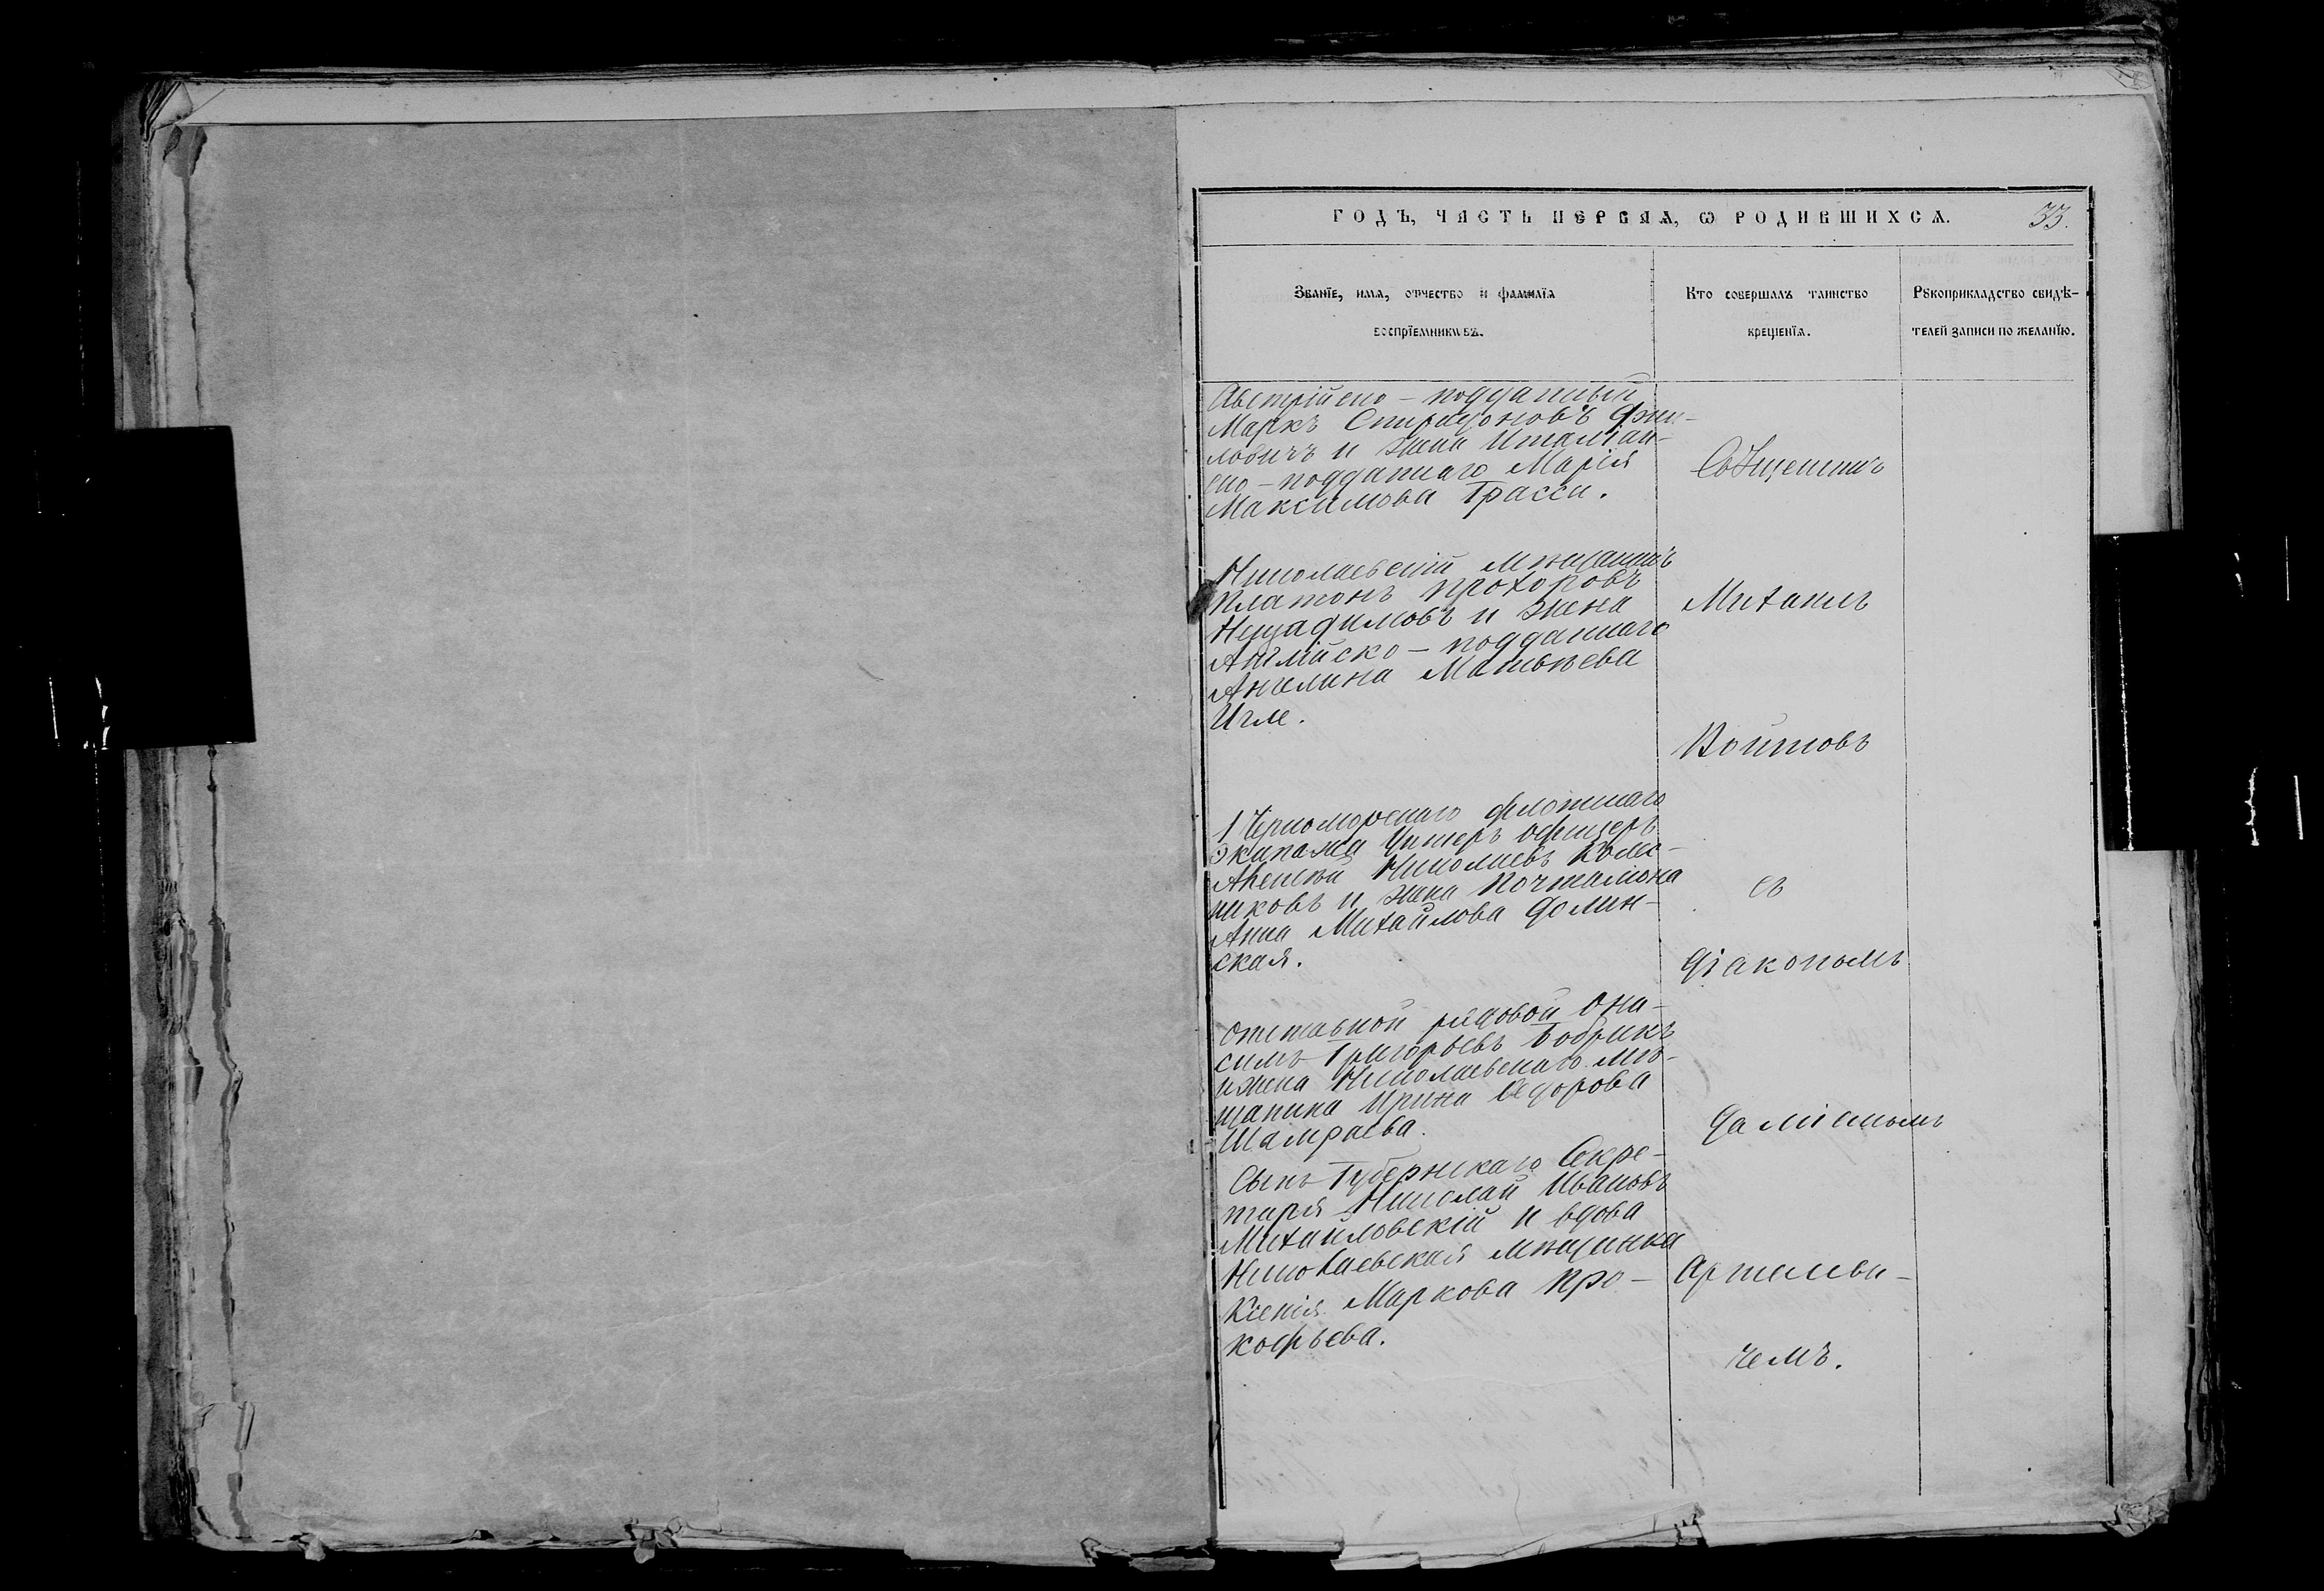 ГОДЪ, ЧАСТЬ ПЕРВАЯ, Ѡ РОДИВШИХСѦ. 33.
Званїе, имѧ, отчество и фамилїѧ
воспрїемниковъ.
Кто совершалъ таинство
крещенїѧ.
Рꙋкоприкладство свидѣ-
телей записи по желанїю.
Австрійско - подданный
Маркъ Спиридоновъ
ловичъ и жена Италіан-
ско - подданнаго Марія
Максимова Грасси.
Николаевскій мѣщанинъ
Платонъ Прохоровъ
и жена
Англійско - подданнаго
Ангелина Матвѣева
1 Черноморскаго флотскаго
Экипажа Унтеръ офицеръ
Алексѣй Николаевъ Колес-
никовъ и жена Почталіона
Анна Михайлова Долин-
ская.
Отставной рядовой Они-
симъ Григорьевъ Бобрикъ
и жена Николаевскаго мѣ-
щанина Ирина Ѳедорова
Шамраева.
Сынъ Губернскаго Секре-
таря Николай Ивановъ
Михайловскій и вдова
Николаевская мѣщанка
Ксенія Маркова Про-
кофьева.
Священникъ
Михаилъ
Войтовъ
съ
Діакономъ
Даміаномъ
Артемови-
чемъ.